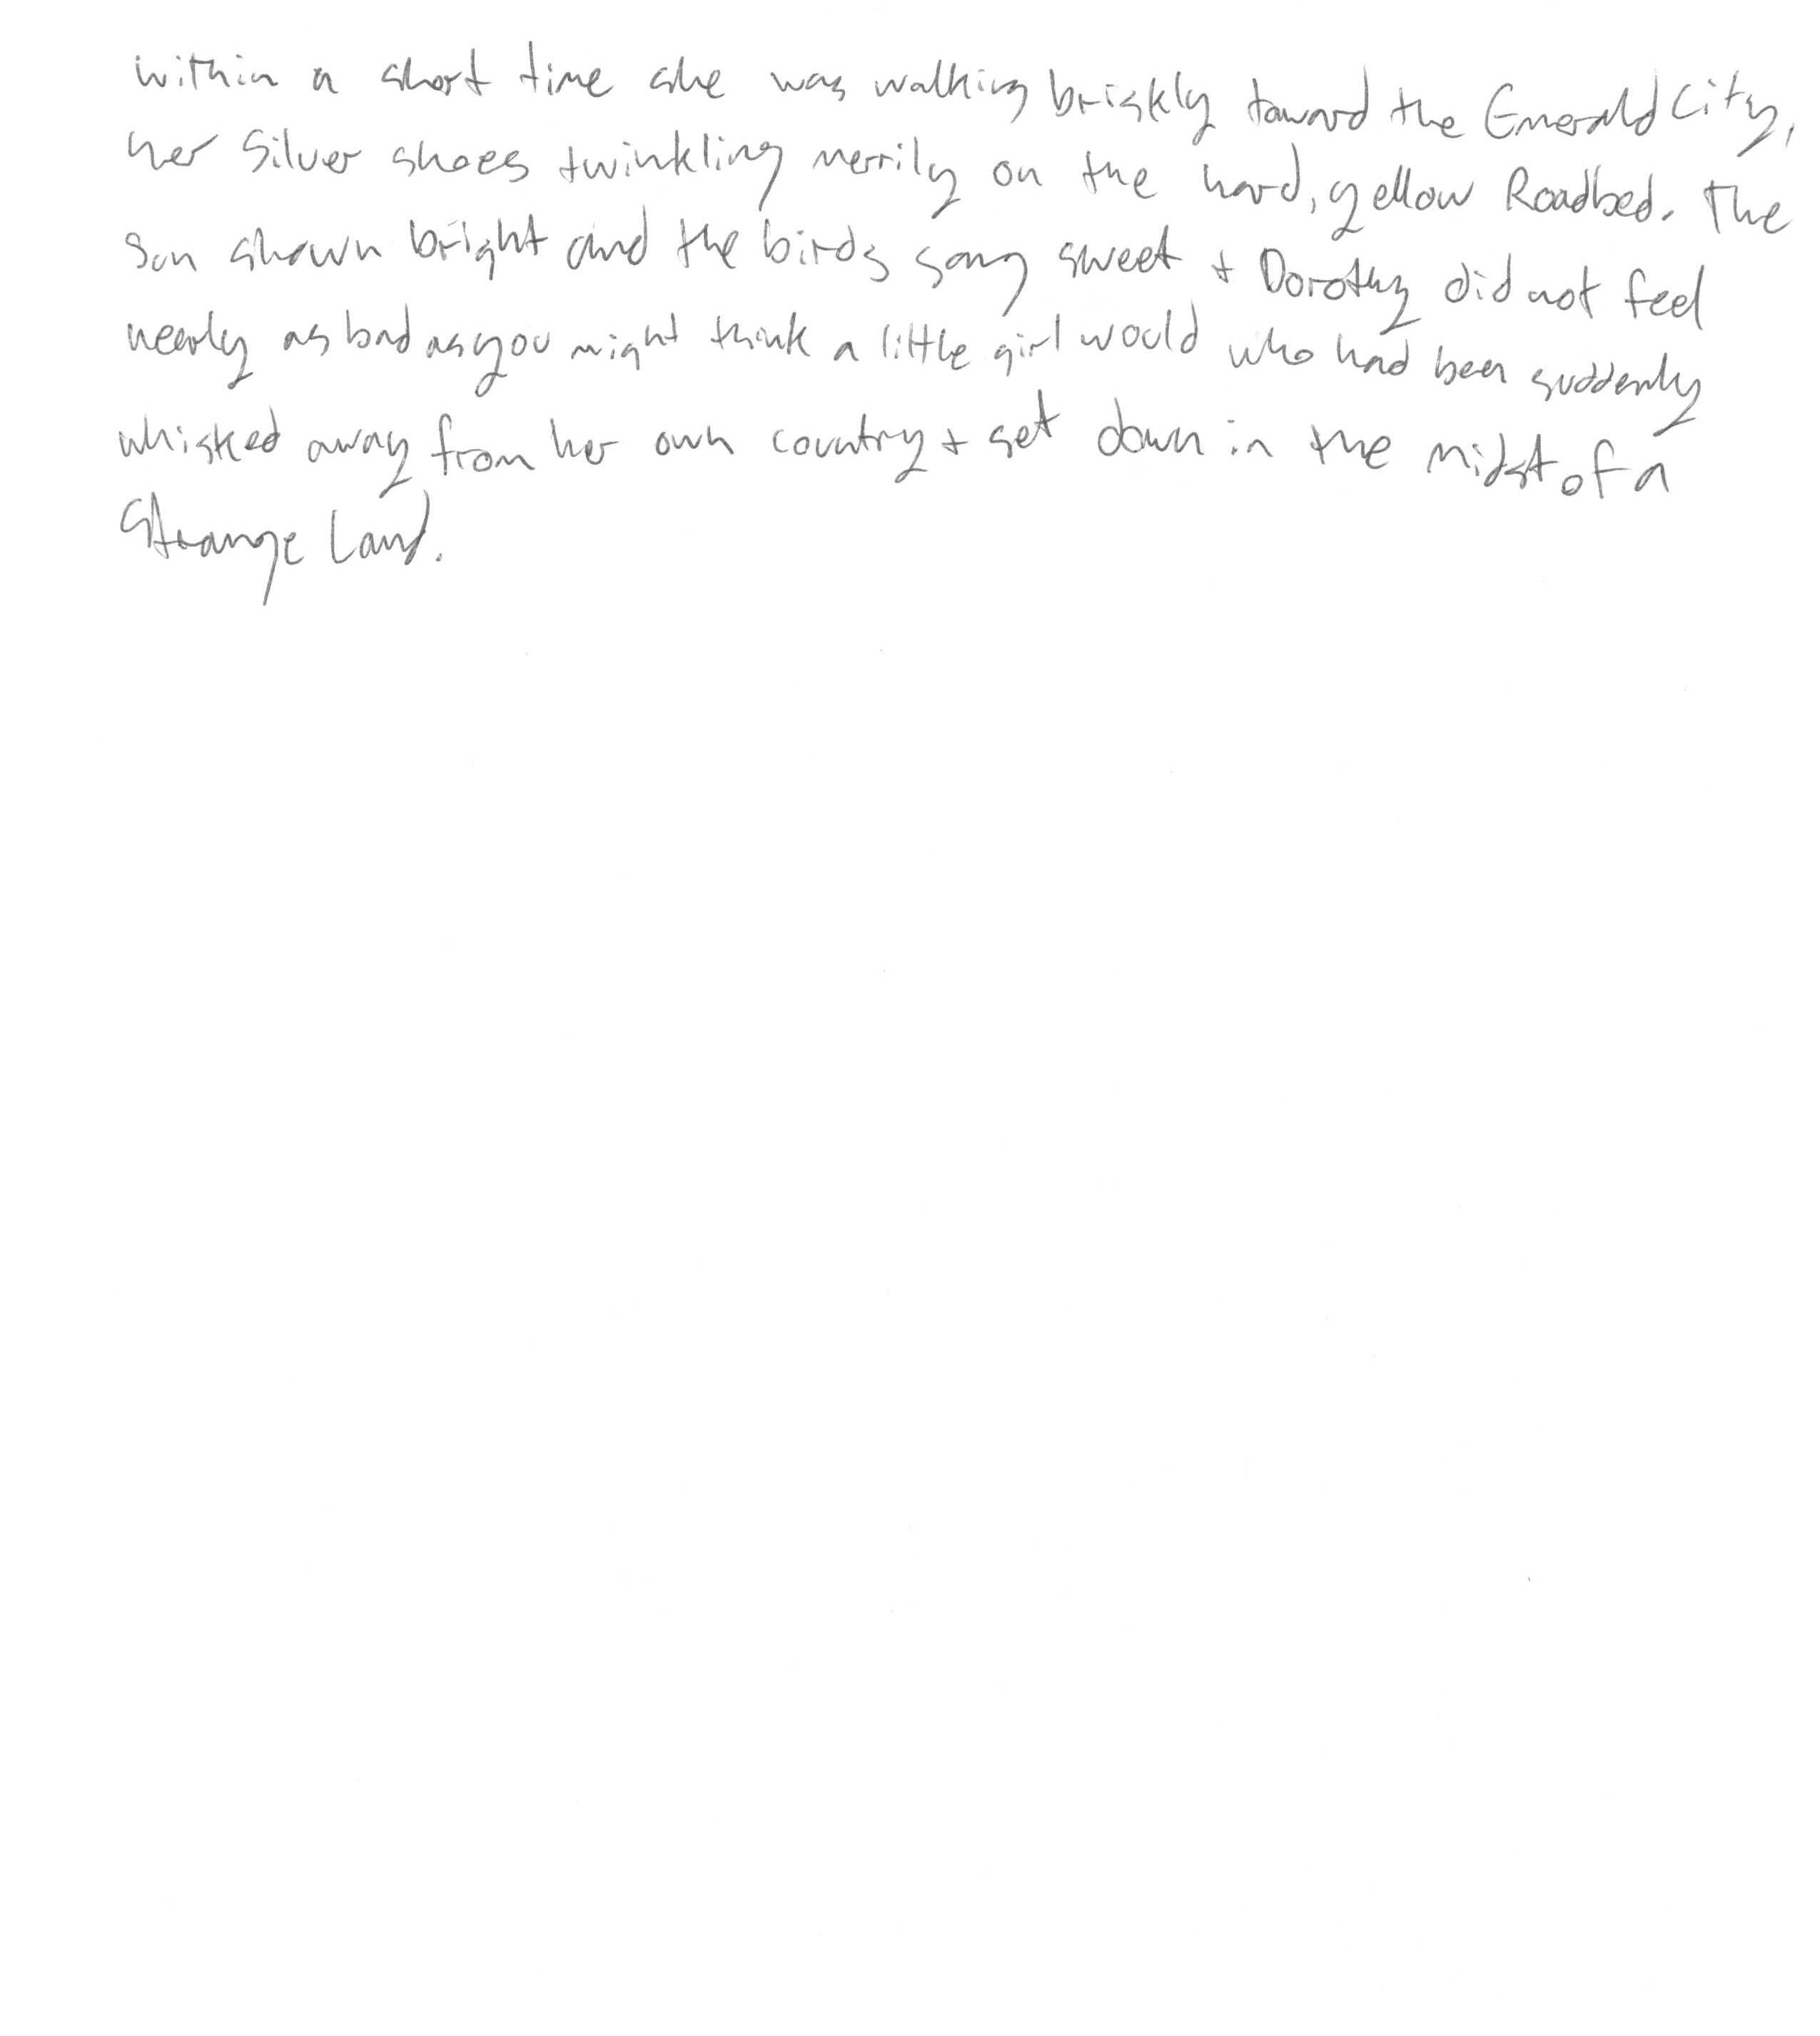 within a short time she was walking briskly toward the Emerald City,
her Silver shoes twinkling merrily on the hard, yellow Roadbed. The
Sun shown bright and the birds sang sweet + Dorothy did not feel
nearly as bad as you might think a little girl would who had been suddenly
whisked away from her own country + set down in the midst of a
Strange Land.